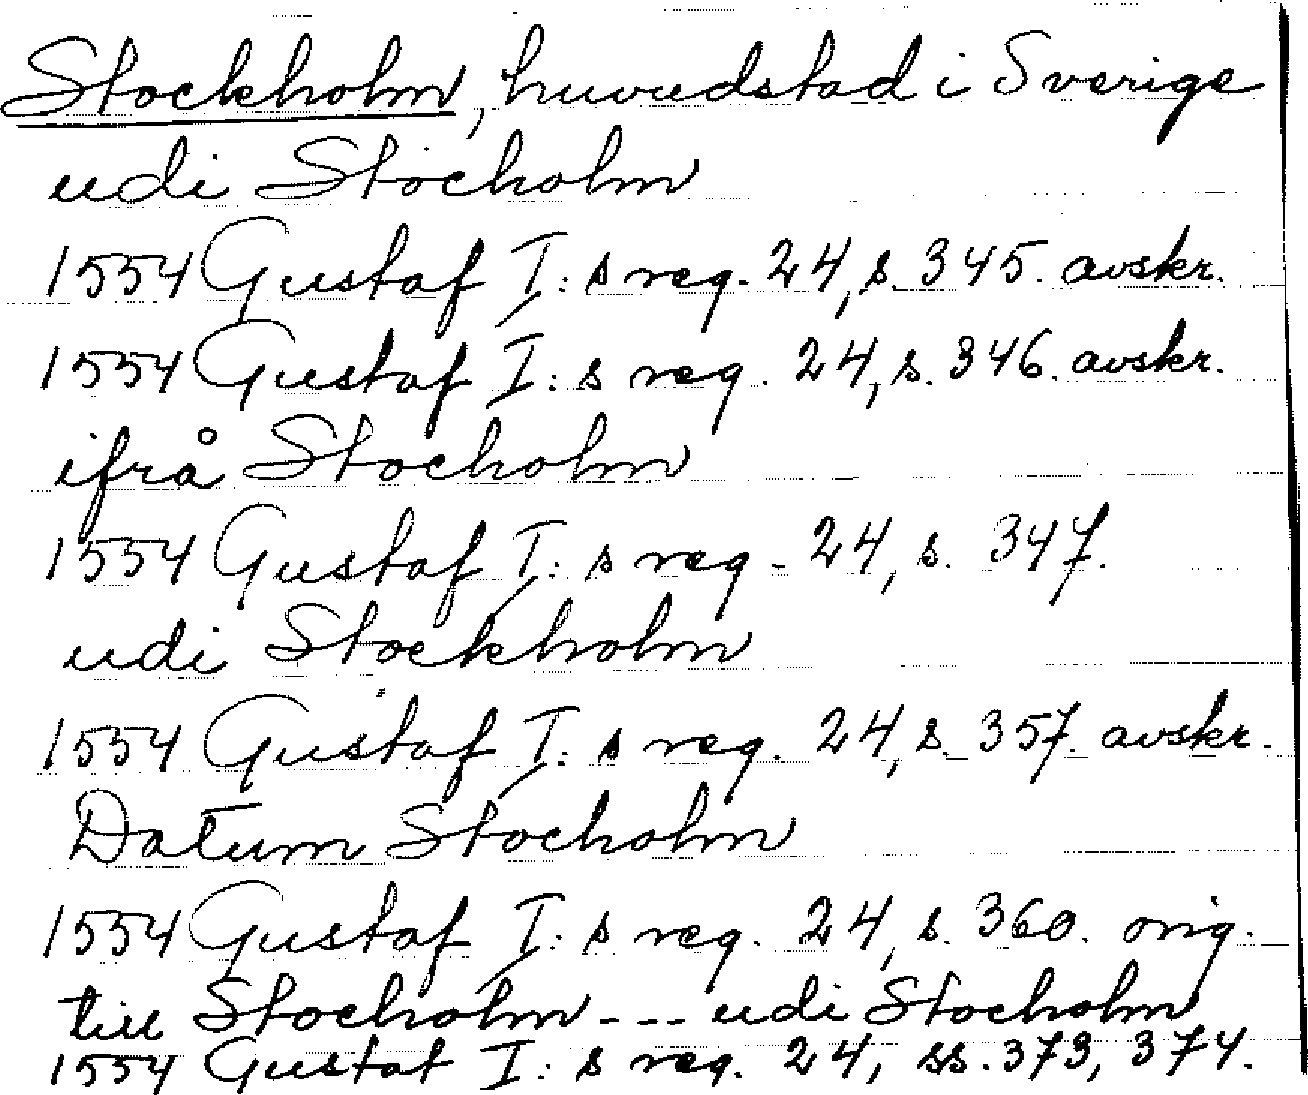 Stockholm, huvudstad i Sverige
udi Stocholm
1554 Gustaf I:s reg. 24, s. 345. avskr.
1554 Gustaf I:s reg. 24, s. 346. avskr.
ifrå Stocholm
1554 Gustaf I:s reg. 24, s. 347.
udi Stockholm
1554 Gustaf I:s reg. 24, s. 357. avskr.
Datum Stocholm
1554 Gustaf I:s reg. 24, s. 360. orig.
till Stocholm --- udi Stocholm
1554 Gustaf I:s reg. 24, ss. 373, 374.